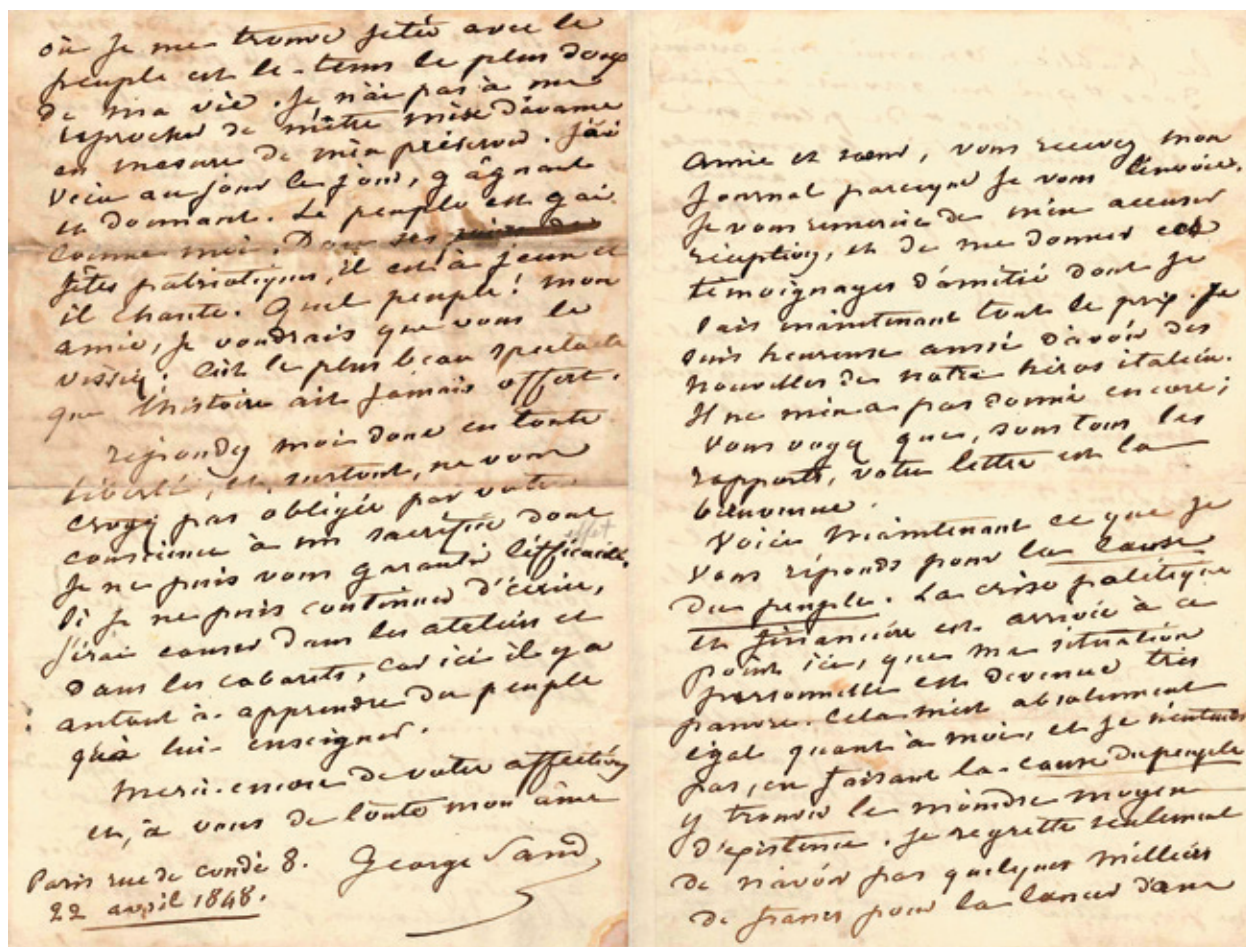 où je me trouve jetée avec le
peuple est le tems le plus doux
de ma vie. Je n'ai pas à me
reprocher de m'être mise d'avance
en mesure de m'en préserver. J'ai
vécu au jour le jour, gâgnant
et donnant. Le peuple est gai
comme moi. Dans ses
fêtes patriotiques, il est à jeun et
il chante. Quel peuple! mon
amie, je voudrais que vous le
vissiez! C'est le plus beau spectacle
que l'histoire ait jamais offert.
répondez moi donc en toute
liberté, et, surtout, ne vous
croyez pas obligée par votre
conscience à un sacrifice dont effet
je ne puis vous garantir l'efficacité.
Si je ne puis continuer d'écrire,
j'irai causer dans les ateliers et
dans les cabarets, car ici il y a
autant à apprendre du peuple
qu'à lui enseigner.
Merci encore de votre affection
et, à vous de toute mon âme
George Sand
Paris rue de condé 8.
22 avril 1848.
Amie et sœur, vous recevez mon
journal parceque je vous l'envoie.
Je vous remercie de m'en accuser
réception, et de me donner ces
témoignages d'amitié dont je
sais maintenant tout le prix. Je
suis heureuse aussi d'avoir des
nouvelles de notre héros italien.
Il ne m'en a pas donné encore;
Vous voyez que, sous tous les
rapports, votre lettre est la
bienvenue.
Voici maintenant ce que je
vous réponds pour la cause
du peuple. La crise politique
et financière est arrivée à ce
point ici, que ma situation
personnelle est devenue très
pauvre. Cela m'est absolument
égal quant à moi, et je n'entends
pas, en faisant la cause du peuple
y trouver le moindre moyen
d'existence. Je regrette seulement
de n'avoir pas quelques milliers
de francs pour la lancer d'une